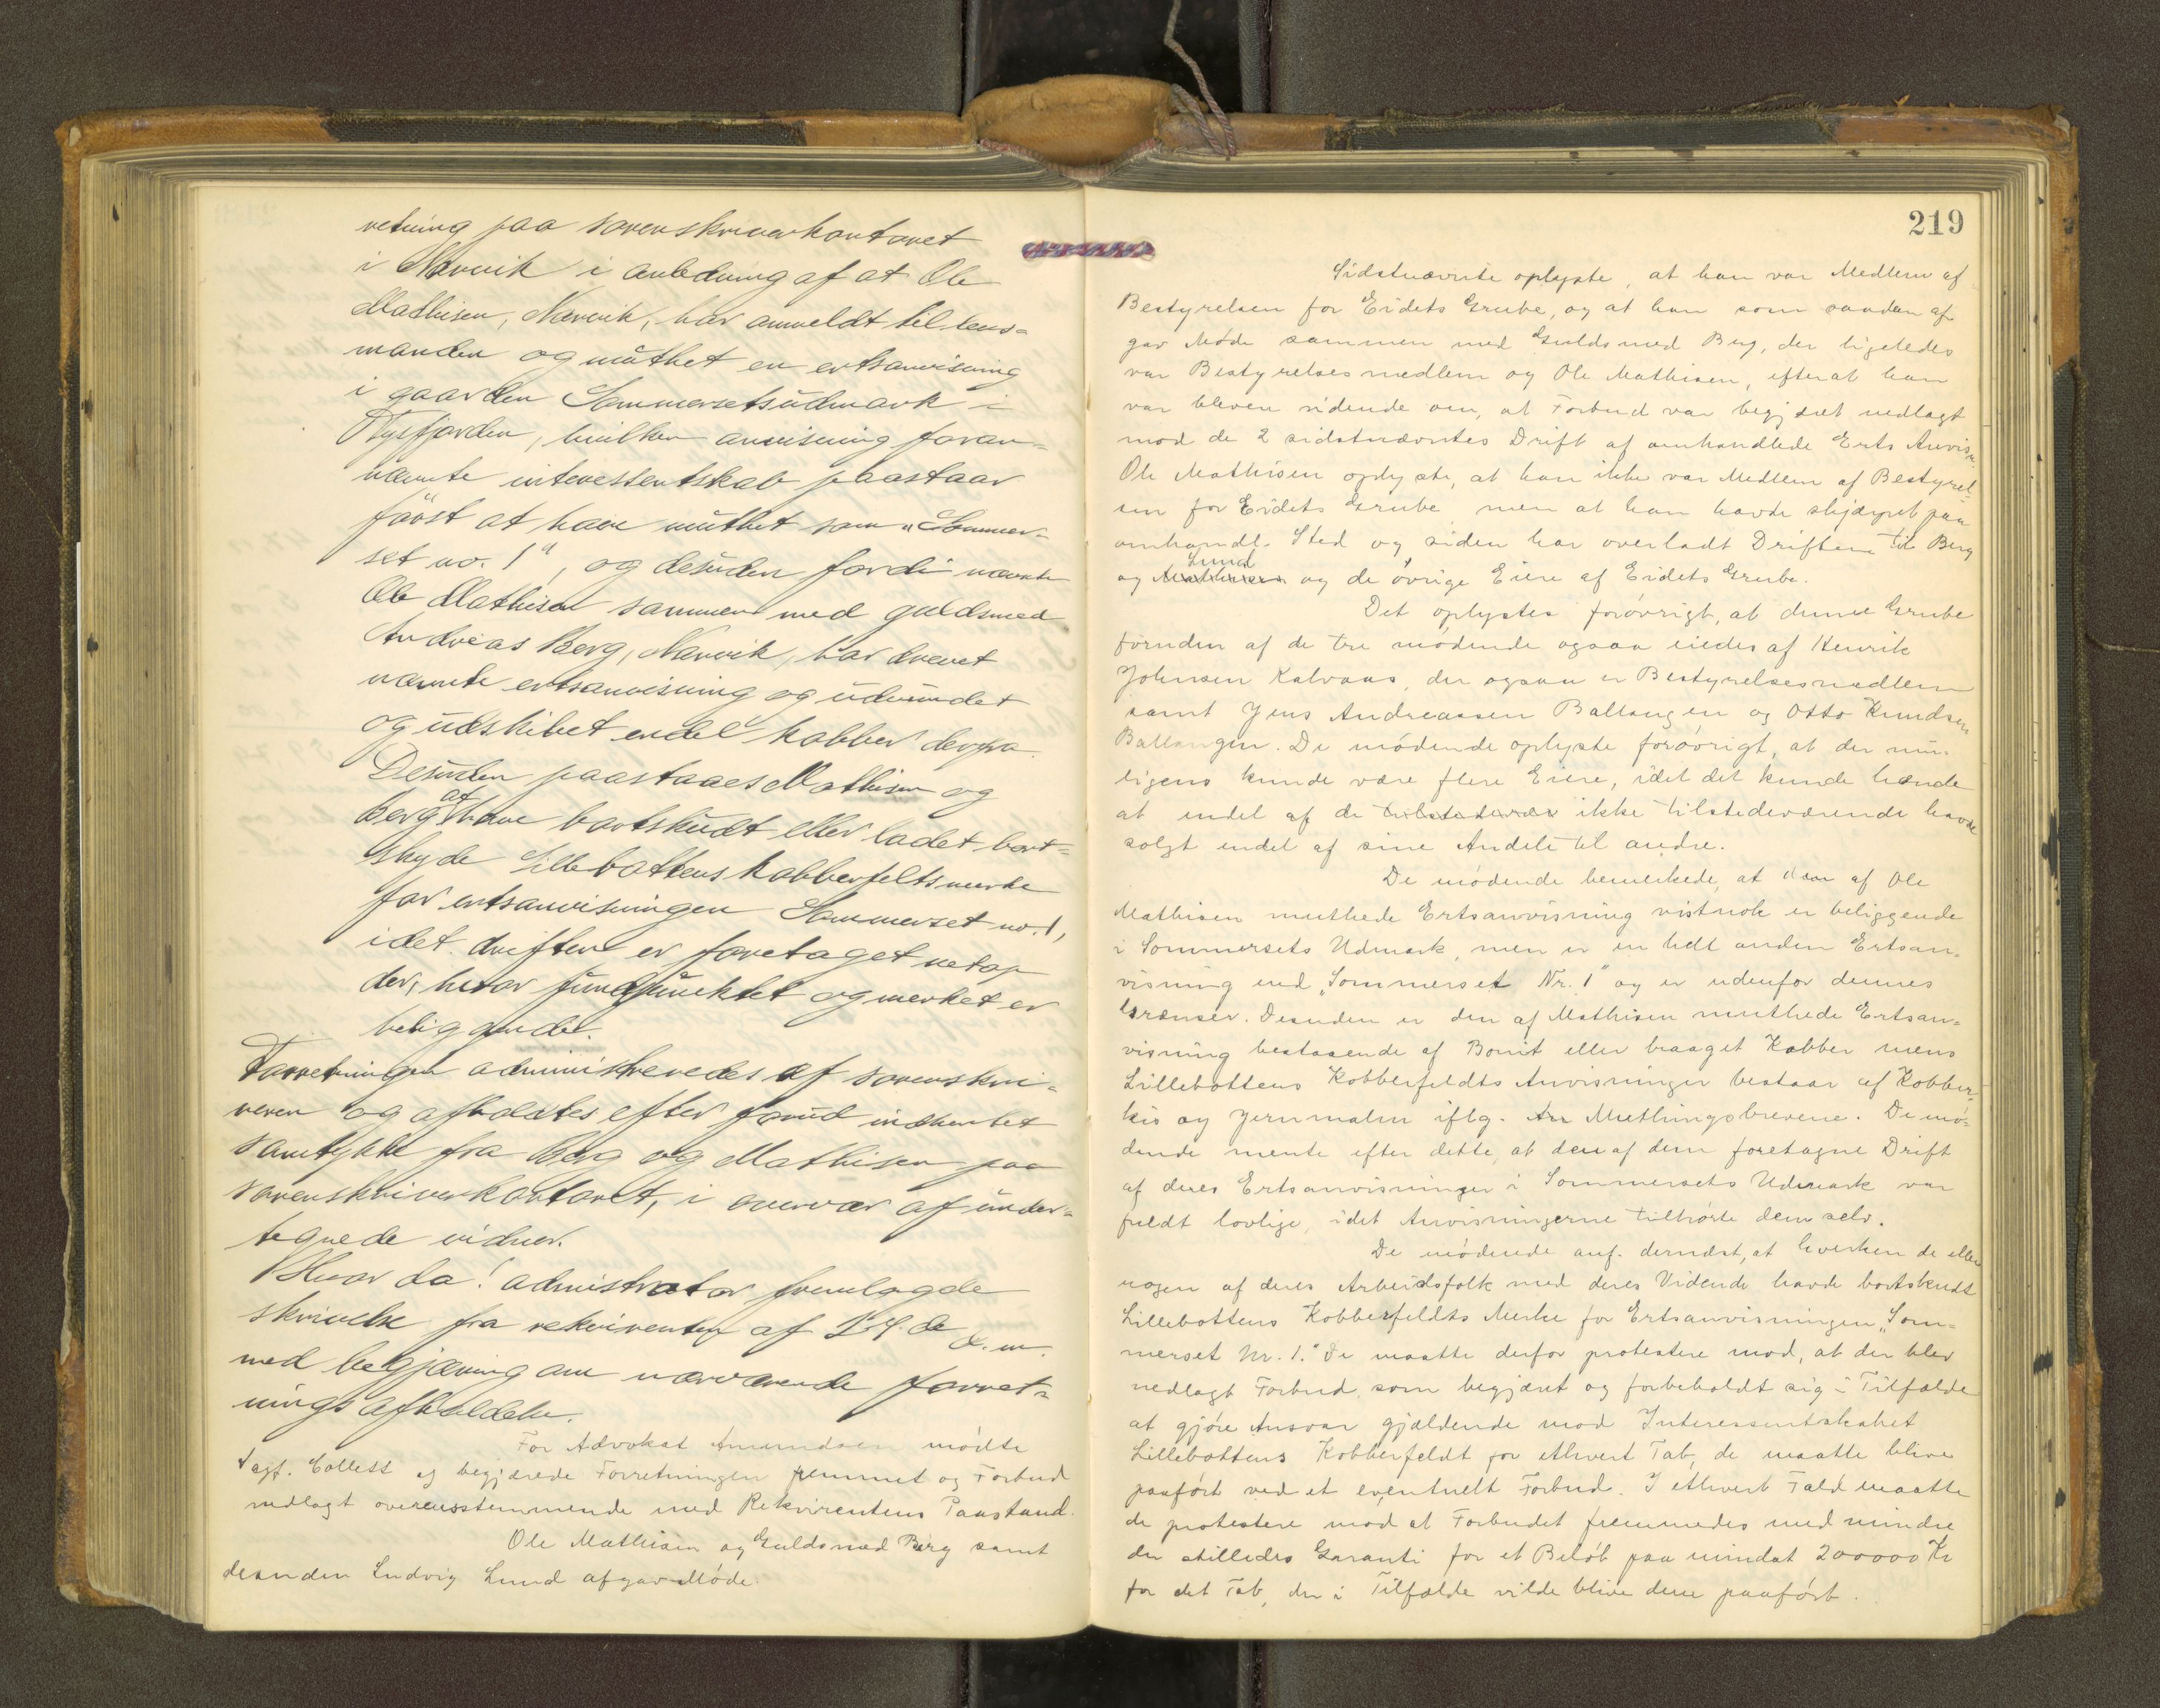 retning paa sorenskriverkontoret
i Narvik i anledning af at Ole
Mathisen, Narvik, har anmeldt til lens=
manden og muthet en ertsanvisning
i gaarden Sommersetsudmark i
Tysfjorden, hvilken anvisning foran=
nævnte interessentskab paastaar
først at have muthet som "Sommer=
set no. 1", og desuden fordi nævnte
Ole Mathisen sammen med guldsmed
Andreas Berg, Narvik, har drevet
nævnte ertsanvisning og udvundet
og udskibet endel kobber derfra.
Desuden paastaaes Mathisen og
Berg at have bortskudt eller ladet bort=
skyde Lillebottens kobberfelts merke
for ertsanvisningen Sommerset no. 1,
idet driften er foretaget netop
der, hvor fundpunktet og merket er
beliggende.
Forretningen administreredes af sorenskri=
veren og afholdtes efter forud indhentet
samtykke fra Berg og Mathisen paa
sorenskriverkontoret, i overvær af under=
tegnede vidner.
Hvor da! administrator fremlagde
skrivelse fra rekvirenten af 24. de d.m.
med begjæring om nærværende forret=
nings afholdelse.
For Advokat Amundsen mødte
sagf. Collett og begjærede Forretningen fremmet og Forbud
nedlagt overensstemmende med Rekvirentens Paastand.
Ole Mathisen og Guldsmed Berg samt
desuden Ludvig Lund afgav Møde.
219
Sidstnævnte oplyste, at han var Medlem af
Bestyrelsen for Eidets Grube, og at han som saadan af-
gav Møde sammen med Guldsmed Berg, der ligeledes
var Bestyrelsesmedlem og Ole Mathisen, efterat han
var bleven vidende om, at Forbud var begjært nedlagt
mod de 2 sidstnævntes Drift af omhandlede Erts Anvisn.
Ole Mathisen oplyste, at han ikke var Medlem af Bestyrel-
sen for Eidets Grube men at han havde skjærpet paa
omhandl. Sted og siden har overladt Driften til Berg
og Mathisen Lund og de øvrige Eiere af Eidets Grube.
Det oplystes forøvrigt, at denne Grube
foruden af de tre mødende ogsaa eiedes af Henrik
Johnsen Kalvaas, der ogsaa er Bestyrelsesmedlem
samt Jens Andreassen Ballangen og Otto Knudsen
Ballangen. De mødende oplyste forøvrigt, at der mu-
ligens kunde være flere Eiere, idet det kunde hænde
at endel af de tilstedevær ikke tilstedeværende havde
solgt endel af sine Andele til andre.
De mødende bemerkede, at den af Ole
Mathisen muthede Ertsanvisning vistnok er beliggende
i Sommersets Udmark, men er en helt anden Ertsan-
visning end "Sommerset Nr. 1" og er udenfor dennes
Grænser. Desuden er den af Mathisen muthede Ertsan=
visning bestaaende af Bornit eller braaget Kobber mens
Lillebottens Kobberfeldts Anvisninger bestaar af Kobber-
kis og Jernmalm iflg. Muthingsbrevene. De mø-
dende mente efter dette, at den af dem foretagne Drift
af deres Ertsanvisninger i Sommersets Udmark var
fuldt lovlige, idet Anvisningerne tilhørte dem selv.
De mødende anf. dernæst, at hverken de eller
nogen af deres Arbeidsfolk med deres Vidende havde bortskudt
Lillebottens Kobberfeldts Merke for Ertsanvisningen "Som=
merset Nr. 1." De maatte derfor protestere mod, at der blev
nedlagt Forbud, som begjæret og forbeholdt sig i Tilfælde
at gjøre Ansvar gjældende mod Interessentskabet
Lillebottens Kobberfeldt for ethvert Tab, de maatte blive
paaført ved et eventuelt Forbud. I ethvert Fald maatte
de protestere mod at Forbudet fremmedes med mindre
der stilledes Garanti for et Beløb paa mindst 200000 Kr
for det Tab, der i Tilfælde vilde blive dem paaført.